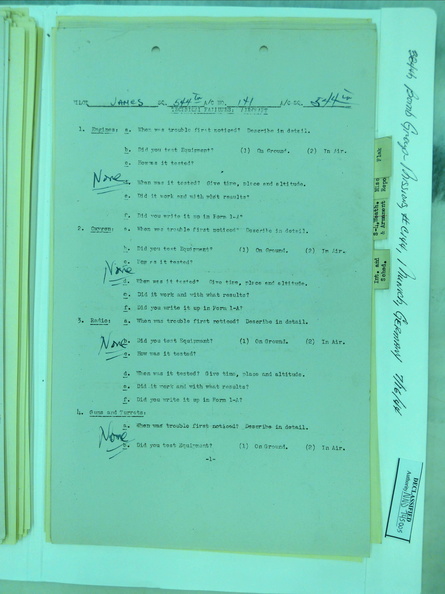 JAMES SQ. 544th A/C NO. 141
TECHNICAL FAILURES, AIRCRAFT
1. Engines: a. When was trouble first noticed? Describe in detail.
b. Did you test Equipment? (1) On Ground. (2) In Air.
c. How was it tested?
None d. When was it tested? Give time, place and altitude.
e. Did it work and with what results?
f. Did you write it up in Form 1-A?
2. a. When was trouble first noticed? Describe in detail.
b. Did you test Equipment? (1) On Ground. (2) In Air.
c. How was it tested?
None
d. When was it tested? Give time, place and altitude.
e. Did it work and with what results?
f. Did you write it up in Form 1-A?
3. Radio: a. When was trouble first noticed? Describe in detail.
None b. Did you test Equipment? (1) On Ground. (2) In Air.
c. How was it tested?
d. When was it tested? Give time, place and altitude.
e. Did it work and with what results?
f. Did you write it up in Form 1-A?
4. Guns and Turrets:
a. When was trouble first noticed? Describe in detail.
None b. Did you test Equipment? (1) On Ground. (2) In Air.
-1-
Flak
& Armament Reps
Int. and
Sched.
384th Bomb Group - Mission # 144, Munich, Germany 7/16/44
DECLASSIFIED
Authority NND 745005